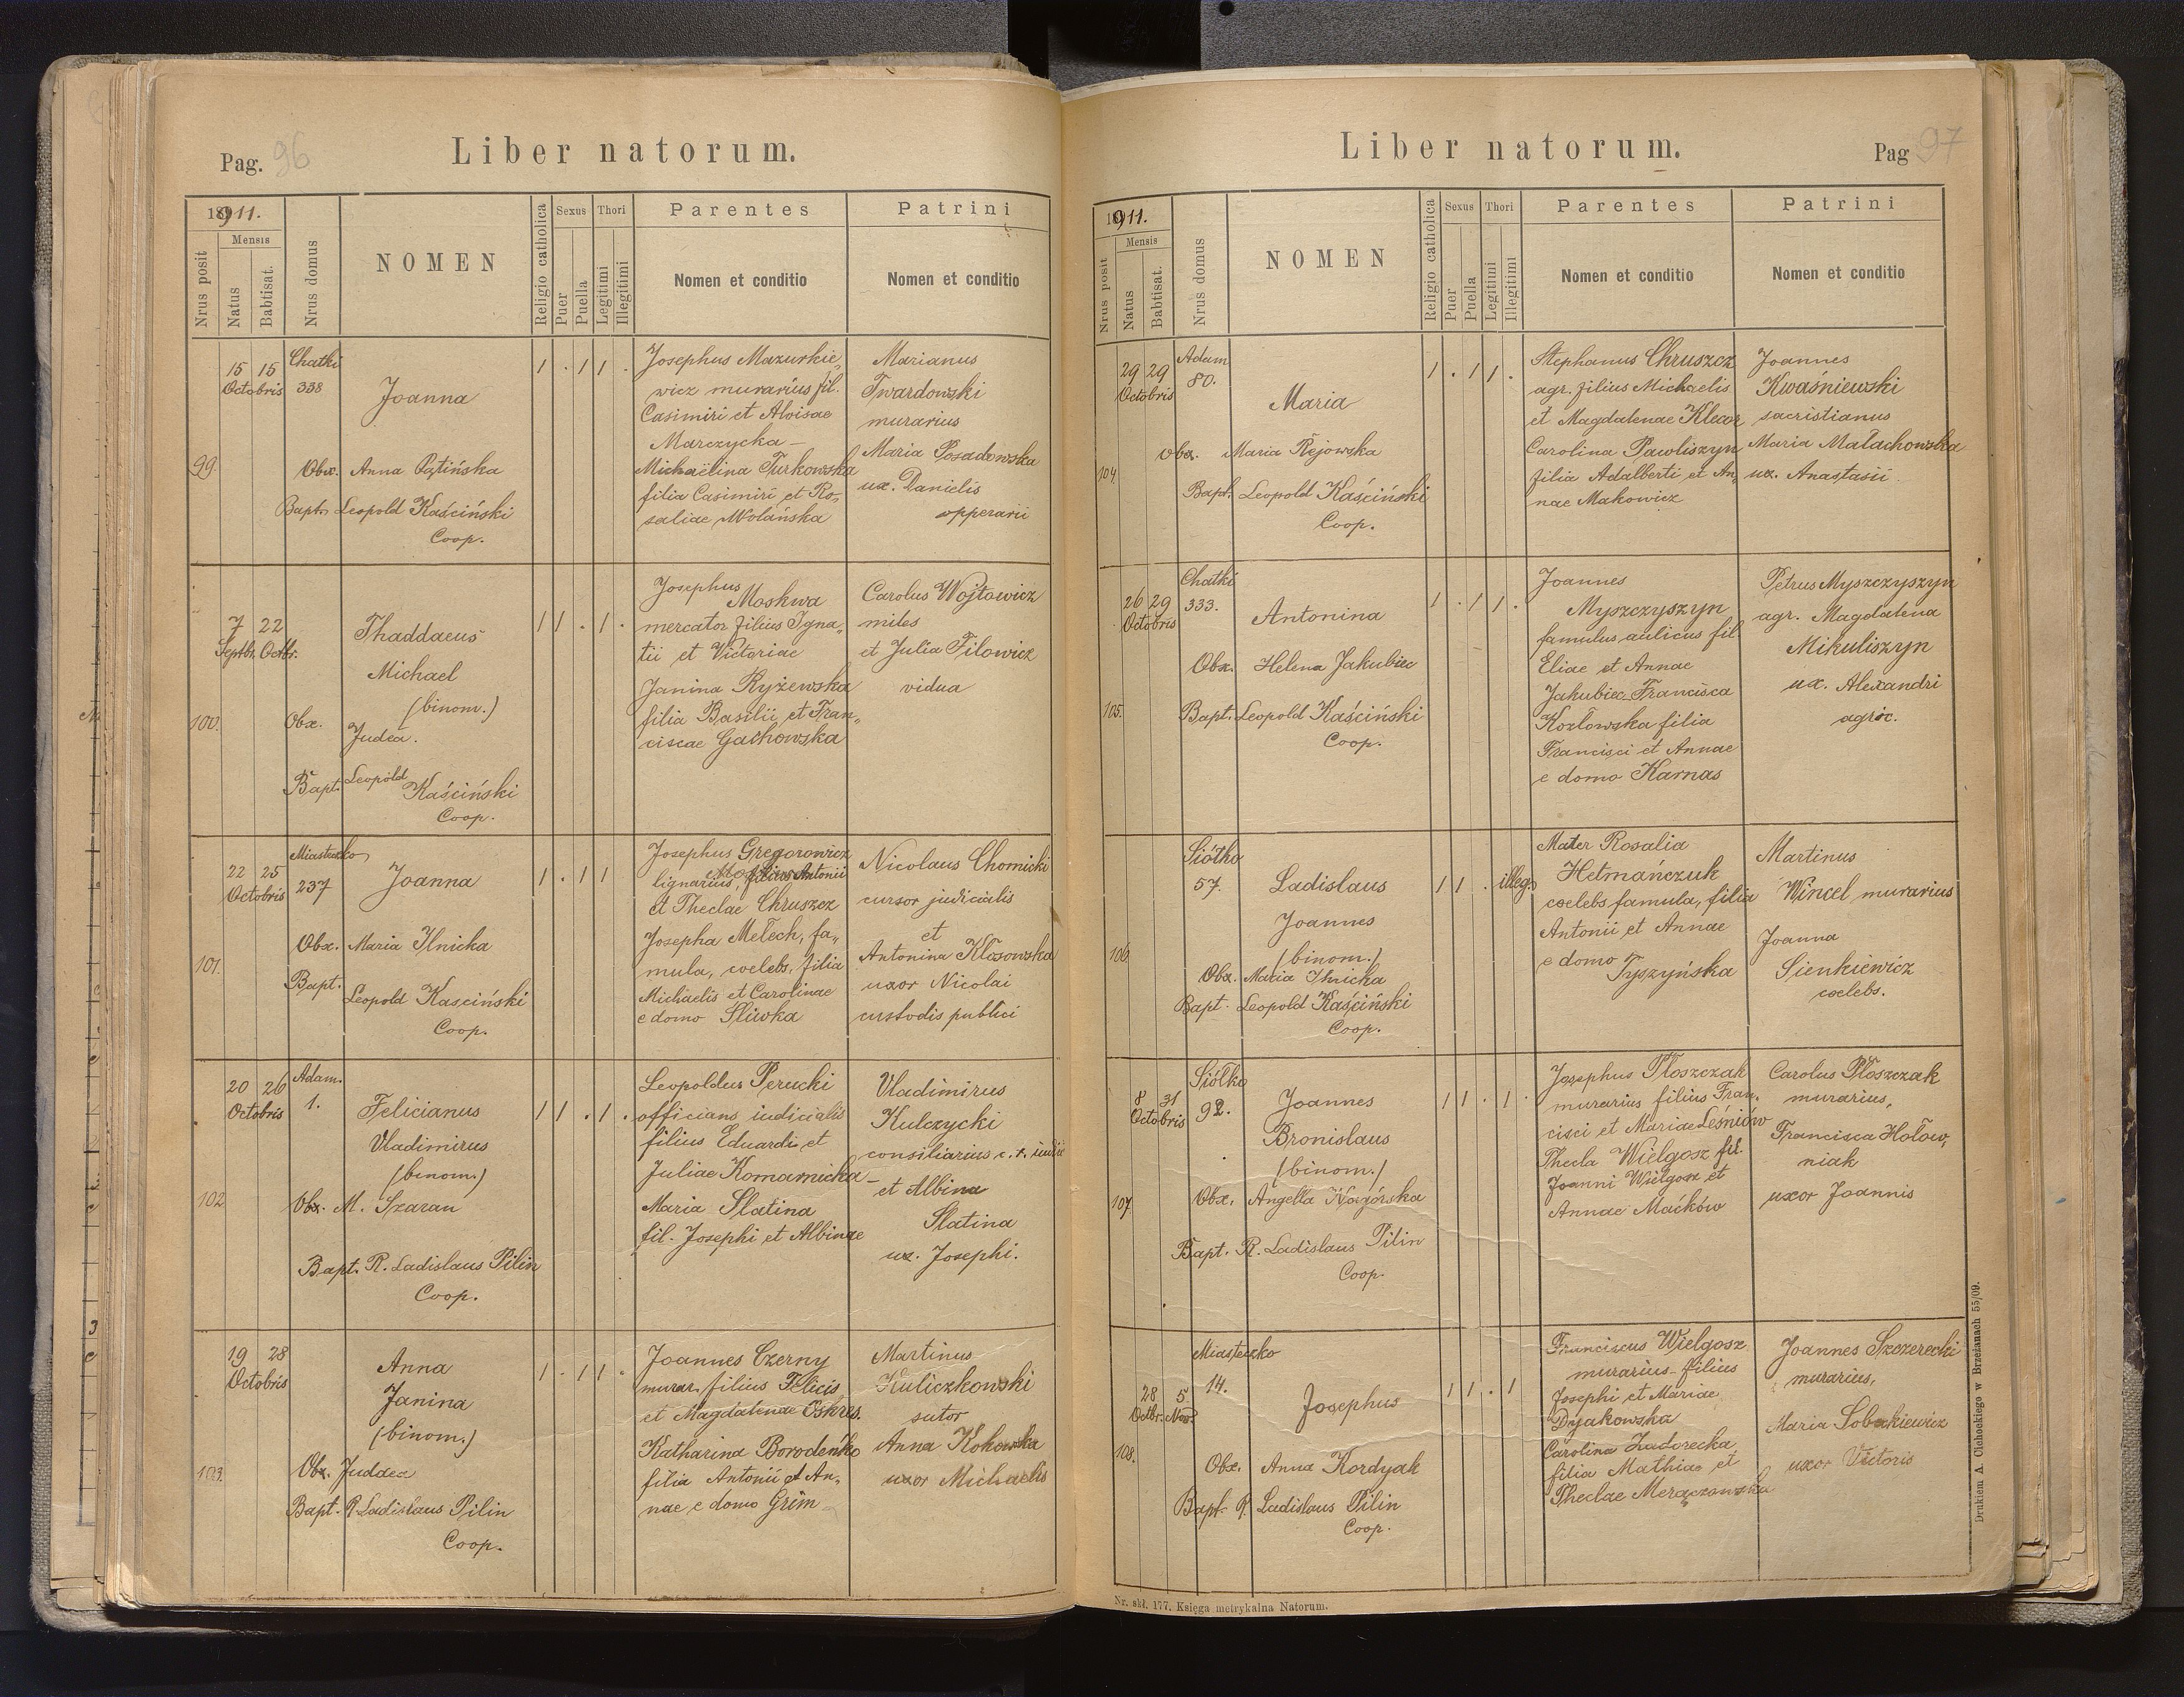 Pag. 96
Liber natorum.
1911.
Nrus posit
Mensis
Natus
Babtisat.
Nrus domus
NOMEN
Religio catholica
Sexus
Puer
Puella
Thori
Legitimi
Illegitimi
Parentes
Nomen et conditio
Patrini
Nomen et conditio
99.
15 15
Octobris
Chatki
338
Joanna
Obx. Anna
Bapt. Leopold Kaściński
Coop.
1 . 1 1 .
Josephus Mazurkie„
wicz murarius fil.
Casimiri et Aloisae
Marczycka –
Michaëlina Turkowska
filia Casimiri et Ro„
saliae Wolańska
Marianus
Twardowski
murarius
Maria Posadowska
ux. Danielis
opperarii
100.
7 22
Septbr. Octbr.
Thaddaeus
Michael
(binom.)
Obx.
Judea.
Bapt. Leopold
Kaściński
Coop.
1 1 . 1 .
Josephus
Moskwa
mercator filius Igna„
tii et Victoriae
Janina Ryżewska
filia Basilii et Fran„
ciscae Gachowska
Carolus Wojtowicz
miles
et Julia Filowicz
vidua
101.
22 25
Octobris
Miasteczko
237
Joanna
Obx. Maria Ilnicka
Bapt.
Leopold Kasciński
Coop.
1 . 1 1
Josephus Gregorowicz
lignarius, filius Antonii
et Theclae Chruszcz
Josepha Melech, fa„
mula, coelebs, filia
Michaelis et Carolinae
e domo Śliwka
Nicolaus Chomicki
cursor judicialis
et
Antonina Kłosowska
uxor Nicolai
custodis publici
102
20 26
Octobris
Adam.
1.
Felicianus
Vladimirus
(binom.)
Obx. M. Szaran
Bapt. R. Ladislaus Pilin
Coop.
1 1 . 1 .
Leopoldus Perucki
officians iudicialis
filius Eduardi et
Juliae Komarnicka –
Maria Slatina
fil. Josephi et Albinae
Vladimirus
Kulczycki
consiliarius c. r.
et Albina
Slatina
ux. Josephi.
103.
19 28
Octobris
Anna
Janina
(binom.)
Obx. Juddea
Bapt. R. Ladislaus Pilin
Coop.
1 . 1 1 .
Joannes Czerny
murar. filius Felicis
et Magdalenae
Katharina Borodeńko
filia Antonii et An„
nae e domo Grim –
Martinus
Kuliczkowski
sutor
Anna Kokowska
uxor Michaelis
Liber natorum.
Pag 97
1911.
Nrus posit
Mensis
Natus
Babtisat.
Nrus domus
NOMEN
Religio catholica
Sexus
Puer
Puella
Thori
Legitimi
Illegitimi
Parentes
Nomen et conditio
Patrini
Nomen et conditio
104.
29 29
Octobris
Adam
80.
Maria
Obx. Maria Rejowska
Bapt. Leopold Kaściński
Coop.
1 . 1 1 .
Stephanus Chruszcz
agr. filius Michaelis
et Magdalenae
Carolina Pawliszyn
filia Adalberti et An„
nae Makowicz
Joannes
Kwaśniewski
sacristianus
Maria Małachowska
ux. Anastasii
105.
26 29
Octobris
Chatki
333.
Antonina
Obx. Helena Jakubiec
Bapt. Leopold Kaściński
Coop.
1 . 1 1 .
Joannes
Myszczyszyn
famulus aulicus fil.
Eliae et Annae
Jakubiec Francisca
Kozłowska filia
Francisci et Annae
e domo Karnas
Petrus Myszczyszyn
agr. Magdalena
Mikuliszyn
ux. Alexandri
agric.
106.
Siółko
57.
Ladislaus
Joannes
(binom.)
Obx. Maria Ilnicka
Bapt. Leopold Kaściński
Coop.
1 1 . illeg.
Mater Rosalia
Hetmańczuk
coelebs famula, filia
Antonii et Annae
e domo
Tyszyńska
Martinus
Wincel murarius
Joanna
Sienkiewicz
coelebs.
107.
8 31
Octobris
Siółko
92.
Joannes
Bronislaus
(binom.)
Obx. Angella
Bapt. R. Ladislaus Pilin
Coop.
1 1 . 1 .
Josephus Płoszczak
murarius filius Fran„
cisci et Mariae Leśniów
Thecla Wielgosz fil.
Joanni Wielgosz et
Annae Maćków
Carolus Płoszczak
murarius,
Francisca Hołow„
niak
uxor Joannis
108.
28 5
Octbr. Nov.
Miasteczko
14.
Josephus
Obx. Anna Kordyak
Bapt. R. Ladislaus Pilin
Coop.
1 1 . 1
Franciscus Wielgosz
murarius filius
Josephi et Mariae
Dyjakowska
Carolina Zadorecka
filia Mathiae et
Theclae
Joannes Szczerecki
murarius,
Maria Sobakiewicz
uxor Victoris
Nr. skł. 177. Księga metrykalna Natorum.
Drukiem A. Cichockiego w Brzeżanach 55/09.